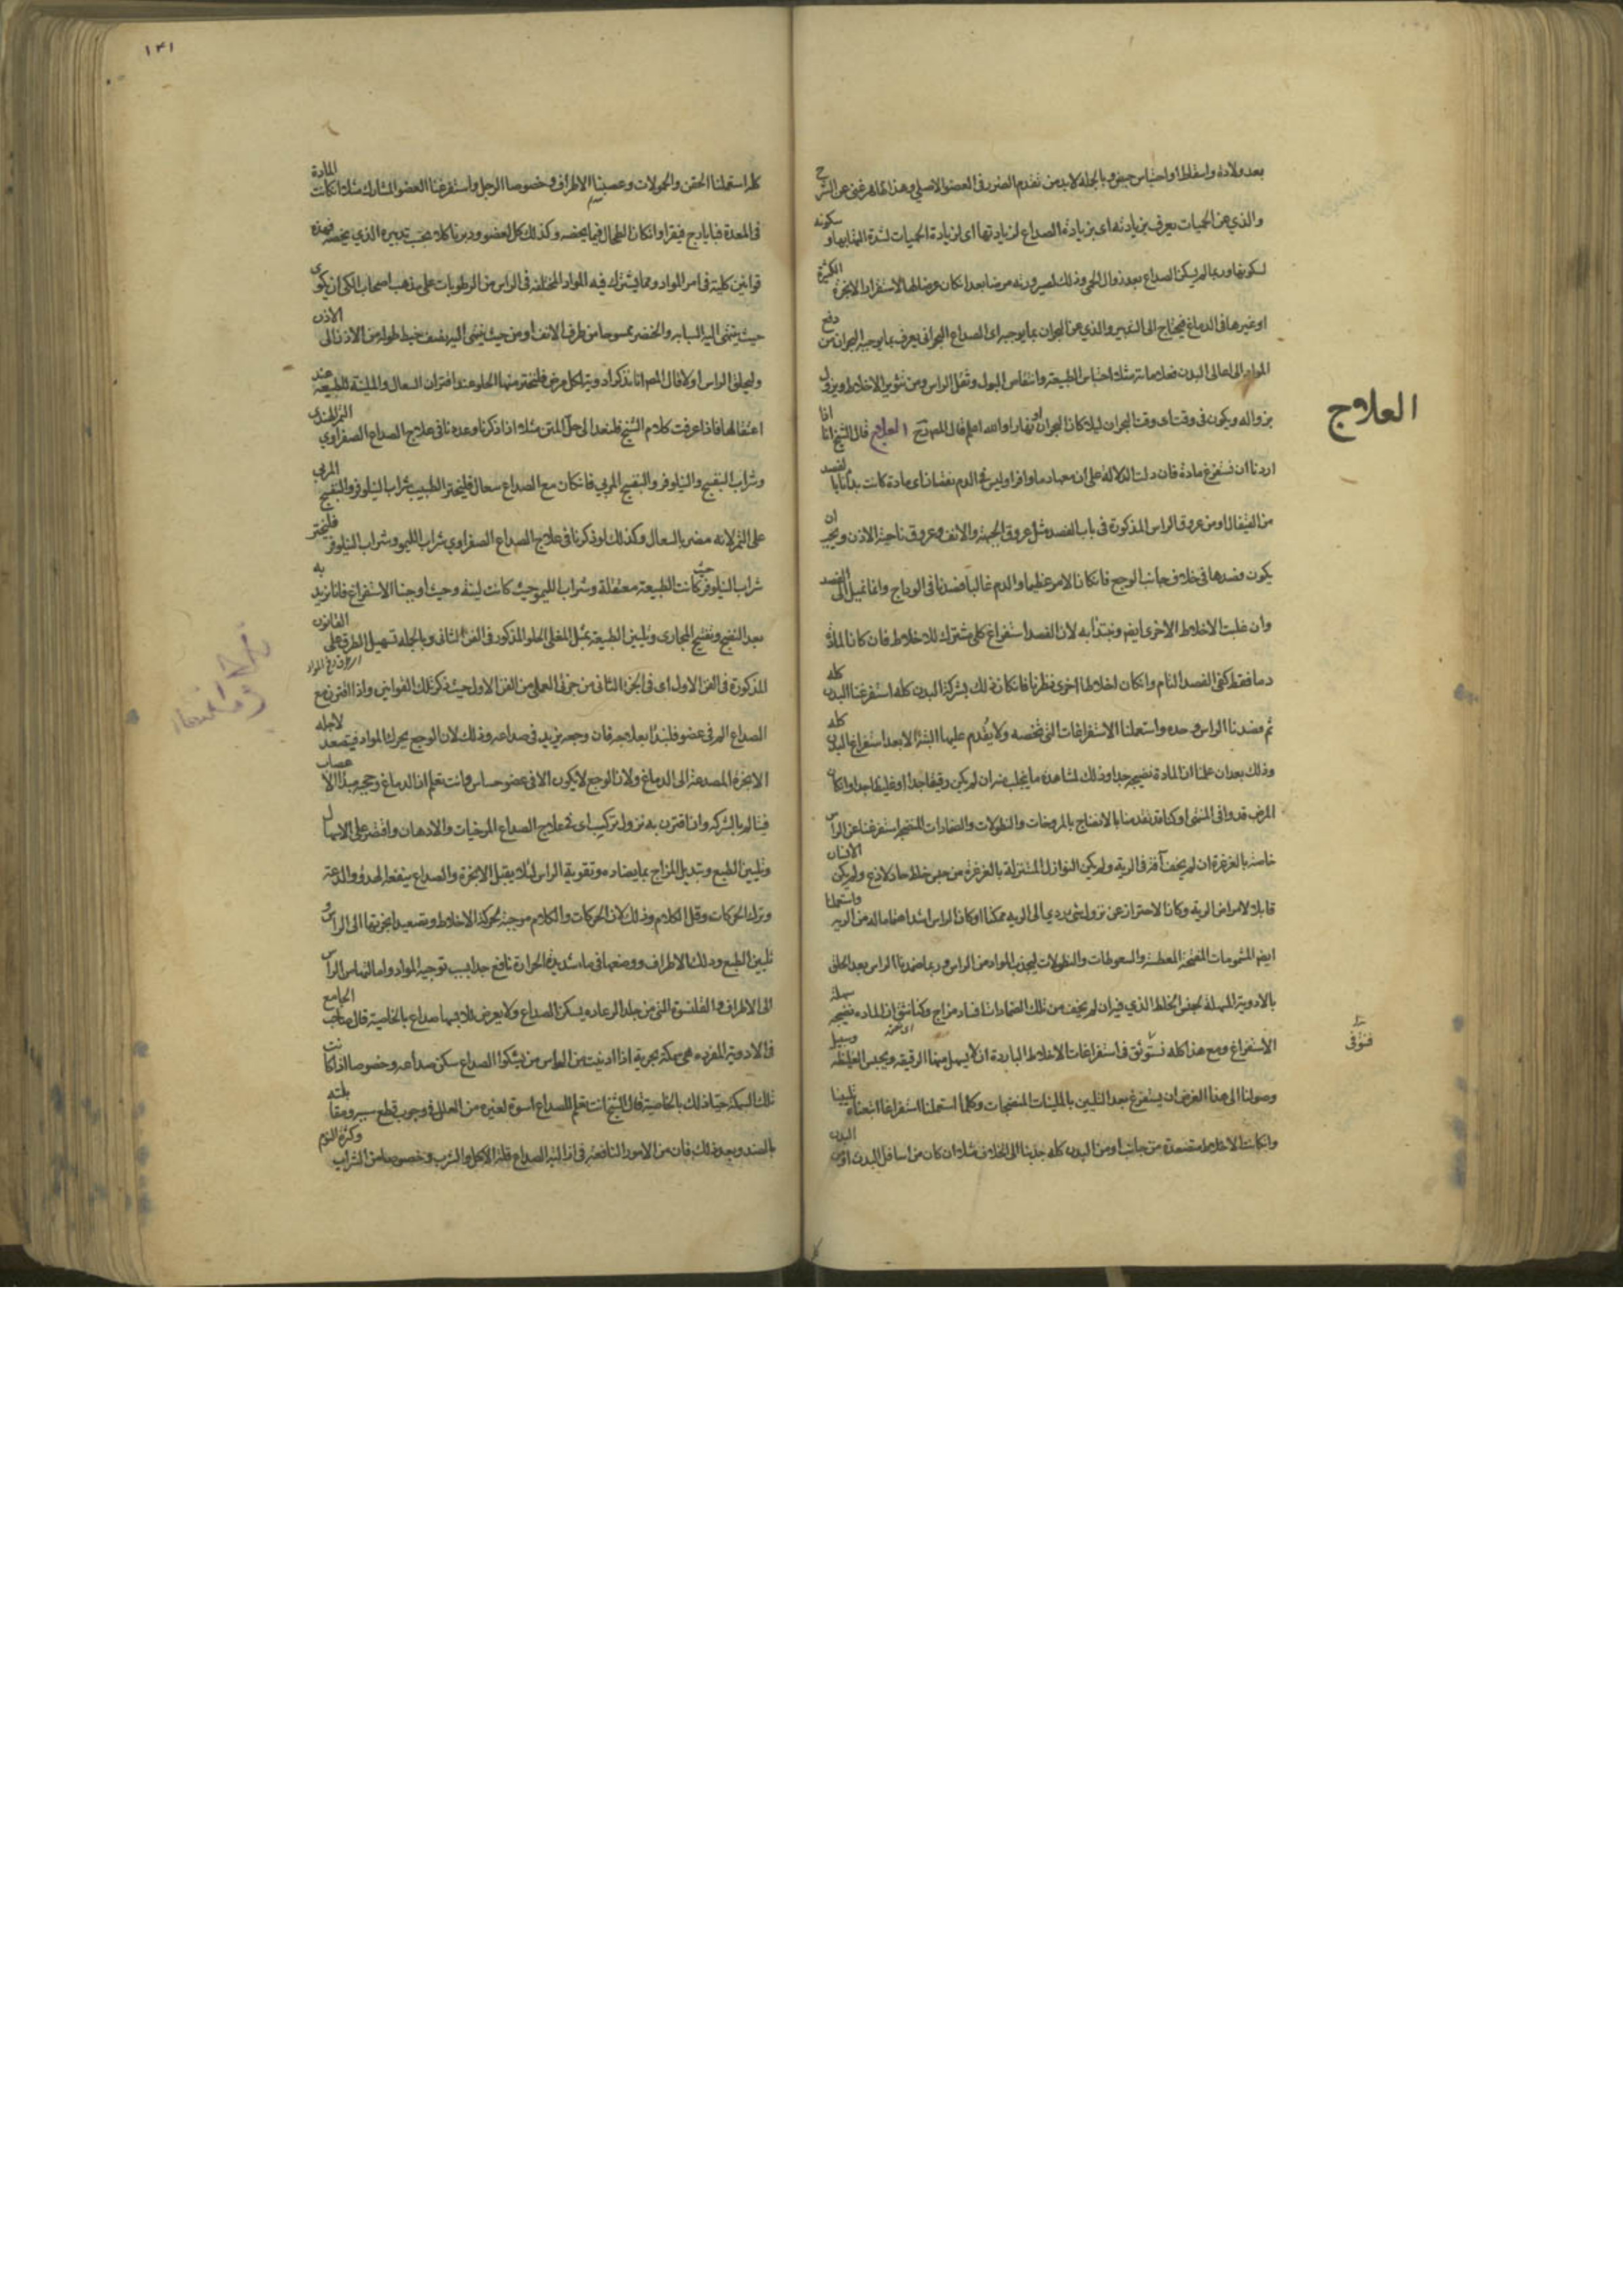 بعد ولادة واسقاط او احتباس حيض وبالجملة لا بد من تقدم الضرر فى العضو الاصلي وهذا ظاهر غنى عن الشرح
والذي عن الحميات يعرف بزيادته اى بزيادة الصداع لزيادتها اى لزيادة الحميات لشدة التهابها و سكونه
لسكونها وربما لم يسكن الصداع بعد زوال الحمى وذلك لصيرورته مرضا بعد ان كان عرضا لها لاستقرار الابخرة الكثيرة
او غيرها فى الدماغ فيحتاج الى التدبير والذي عن البحران بما يوجبه اى الصداع البحرانى يعرف بما يوجبه البحران من دفع
المواد الى اعالى البدن فعلاماته مثل احتباس الطبيعة وانتقاص البول وثقل الراس ومن تثوير الاخلاط ويزول
بزواله ويكون فى وقت اى وقت البحران ليلا كان البحران او نهارا والله اعلم قال المص رح العلاج قال الشيخ انا اذا
اردنا ان نستفرغ مادة فان دلت الدلالة على ان معها دما وافرا وليس فى الدم نقصان اى مادة كانت بدأنا بالفصد
من القيفال او من عروق الراس المذكورة فى باب الفصد مثل عروق الجبهة والانف وعروق ناحية الاذن ويجب ان
يكون فصدها فى خلاف جانب الوجع فان كان الامر عظيما والدم غالبا فصدنا فى الوداج وانما نميل الى الفصد
وان غلبت الاخلاط الاخرى ايضا ونبتدأ به لان الفصد استفراغ كلى مشترك للاخلاط فان كان المادة
دما فقط كفى الفصد التام وان كان اخلاطا اخرى نظرنا فان كان ذلك بشركة البدن كله استفرغنا البدن كله
ثم فصدنا الراس وحده واستعملنا الاستفراغات التى تخصه ولا يقدم عليها البتة الا بعد استفراغ البدن كله
وذلك بعد ان علمنا ان المادة نضيجة جدا وذلك لمشاهدة ما يتحلب منه ان لم يكن رقيقا جدا او غليظا جدا وان كان
المرض قد وافى المنتهى او كنا قد تقدمنا بالانضاج بالمروخات والنطولات والضمادات المنضجة استفرغنا عن الراس
خاصة بالغرغرة ان لم يخف آفة فى الرية ولم يكن النوازل المستنزلة بالغرغرة من جنس خلط حاد لاذع ولم يكن الانسان
قابلا لامراض الرية وكان الاحتراز عن نزول شئ ردي الى الرية ممكنا او كان الراس اشد اهتماما له من الرية واستعملنا
ايضا المشمومات المفتحة المعطسة والسعوطات والنطولات ليجذب المواد من الراس وربما ضمدنا الراس بعد الحلق
بالادوية المسهلة لجنس الخلط الذي فيه ان لم يخف من تلك الضمادات افساد مزاج وكنا نثق ان المادة نضيجة سهلة
الاستفراغ ومع هذا كله نستوثق فى استفراغات الاخلاط الباردة ان لا يسهل منها الرقيقة ويحبس الغليظة وسبيل
وصولنا الى هذا الغرض ان يستفرغ بعد التليين بالملينات المنضجات وكلما استعملنا استفراغا اتبعناه تليينا
وان كانت الاخلاط متصعدة من جانب او من البدن كله جذبنا الى الخلاف مثلا ان كان من اسافل البدن او من البدن
العلاج
١٣١
كله استعملنا الحقن والحمولات وعصبنا الاطراف وخصوصا الرجل واستفرغنا العضو المشارك مثلا ان كانت المادة
فى المعدة فبايارج فيقرا وان كان الطحال فبما يخصه وكذلك كل عضو ودبرنا كلا بحسب تدبيره الذي يخصه فهذه
قوانين كلية فى امر المواد ومما يشترك فيه المواد المختلفة فى الراس من الرطوبات على مذهب اصحاب الكى ان يكوى
حيث ينتهى اليه السبابة والخنصر ممسوحا من طرف الانف او من حيث ينتهى اليه نصف خيط طوله من الاذن الى الاذن
وليحلق الراس اولا قال المص انا نذكر ادوية لكل مرض فليختر منها الحلو عند اقتران السعال والملينة للطبيعة عند
اعتقالها فاذا عرفت كلام الشيخ فلنعد الى حل المتن مثلا اذا ذكرنا وعددنا فى علاج الصداع الصفراوي التمر الهندى
وشراب البنفسج والنيلوفر والبنفسج المربى فان كان مع الصداع سعال فليختر الطبيب شراب النيلوفر والبنفسج المربى
على التمر لانه مضر بالسعال وكذلك لو ذكرنا فى علاج الصداع الصفراوي شراب الليمو وشراب النيلوفر فليختر
شراب النيلوفر حيث كانت الطبيعة معتقلة وشراب الليمو حيث كانت لينة وحيث اوجبنا الاستفراغ فانا نريد به
بعد النضج وتفتيح المجارى وتليين الطبيعة بمثل المغلى الحلو المذكور فى الفن الثانى وبالجملة تسهيل الطرق على القانون
المذكورة فى الفن الاول اى فى الجزء الثانى من جزئى العملى من الفن الاول حيث ذكر تلك القوانين واذا اقترن مع
الصداع الم فى عضو فلنبدأ بعلاجه فان وجعه يزيد فى صداعه وذلك لان الوجع يحرك المواد فيتصعد لاجله
الابخرة المصدعة الى الدماغ ولان الوجع لا يكون الا فى عضو حساس وانت تعلم ان الدماغ وحجبه مبدأ الاعصاب
فيتالم بالشركة وان اقترن به نزول تركيب اى فى علاج الصداع المرخيات والادهان واقتصر على الاسهال
وتليين الطبع وتبديل المزاج بما يضاده وتقوية الراس لئلا يقبل الابخرة والصداع ينفعه الهدو والدعة
وترك الحركات وقلة الكلام وذلك لان الحركات والكلام موجبة لحركة الاخلاط وتصعيد ابخرتها الى الراس و
تليين الطبع ودلك الاطراف ووضعها فى ماء شديد الحرارة نافع جدا بسبب توجيه المواد وامالتها من الراس
الى الاطراف والقلنسوة التى من جلد الرعادة يسكن الصداع ولا يعرض للابسها صداع بالخاصية قال صاحب الجامع
فى الادوية المفردة هى سمكة بحرية اذا ادنيت من الراس من يشكوا الصداع سكن صداعه وخصوصا اذا كانت
تلك السمكة حية وذلك بالخاصية قال الشيخ انت تعلم للصداع اسوة لغيره من العلل فى وجوب قطع سببه ومقابلته
بالضد وبعد ذلك فان من الامور النافعة فى ازالة الصداع قلة الاكل والشرب وخصوصا من الشراب وكثرة النوم